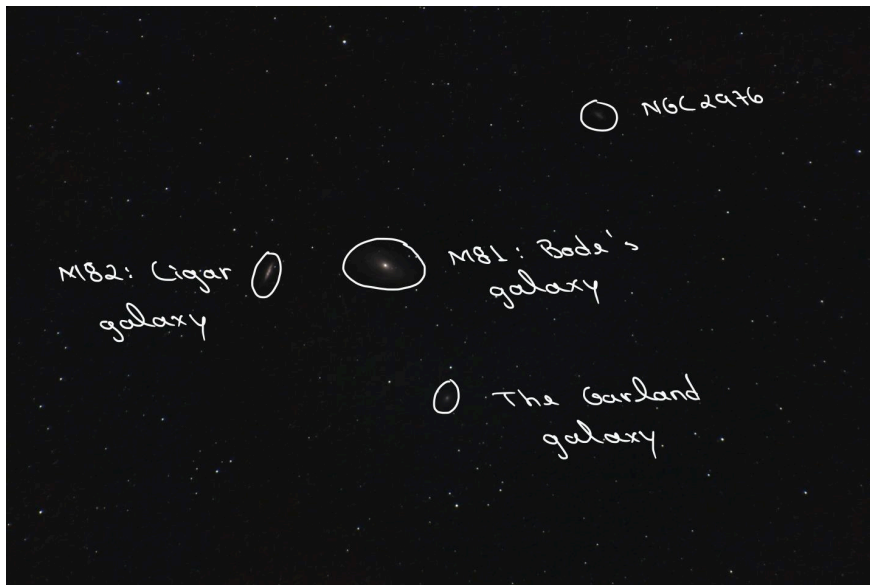 NGC2976
M82: Cigar
galaxy
M81: Bode's
galaxy
The Garland
galaxy.